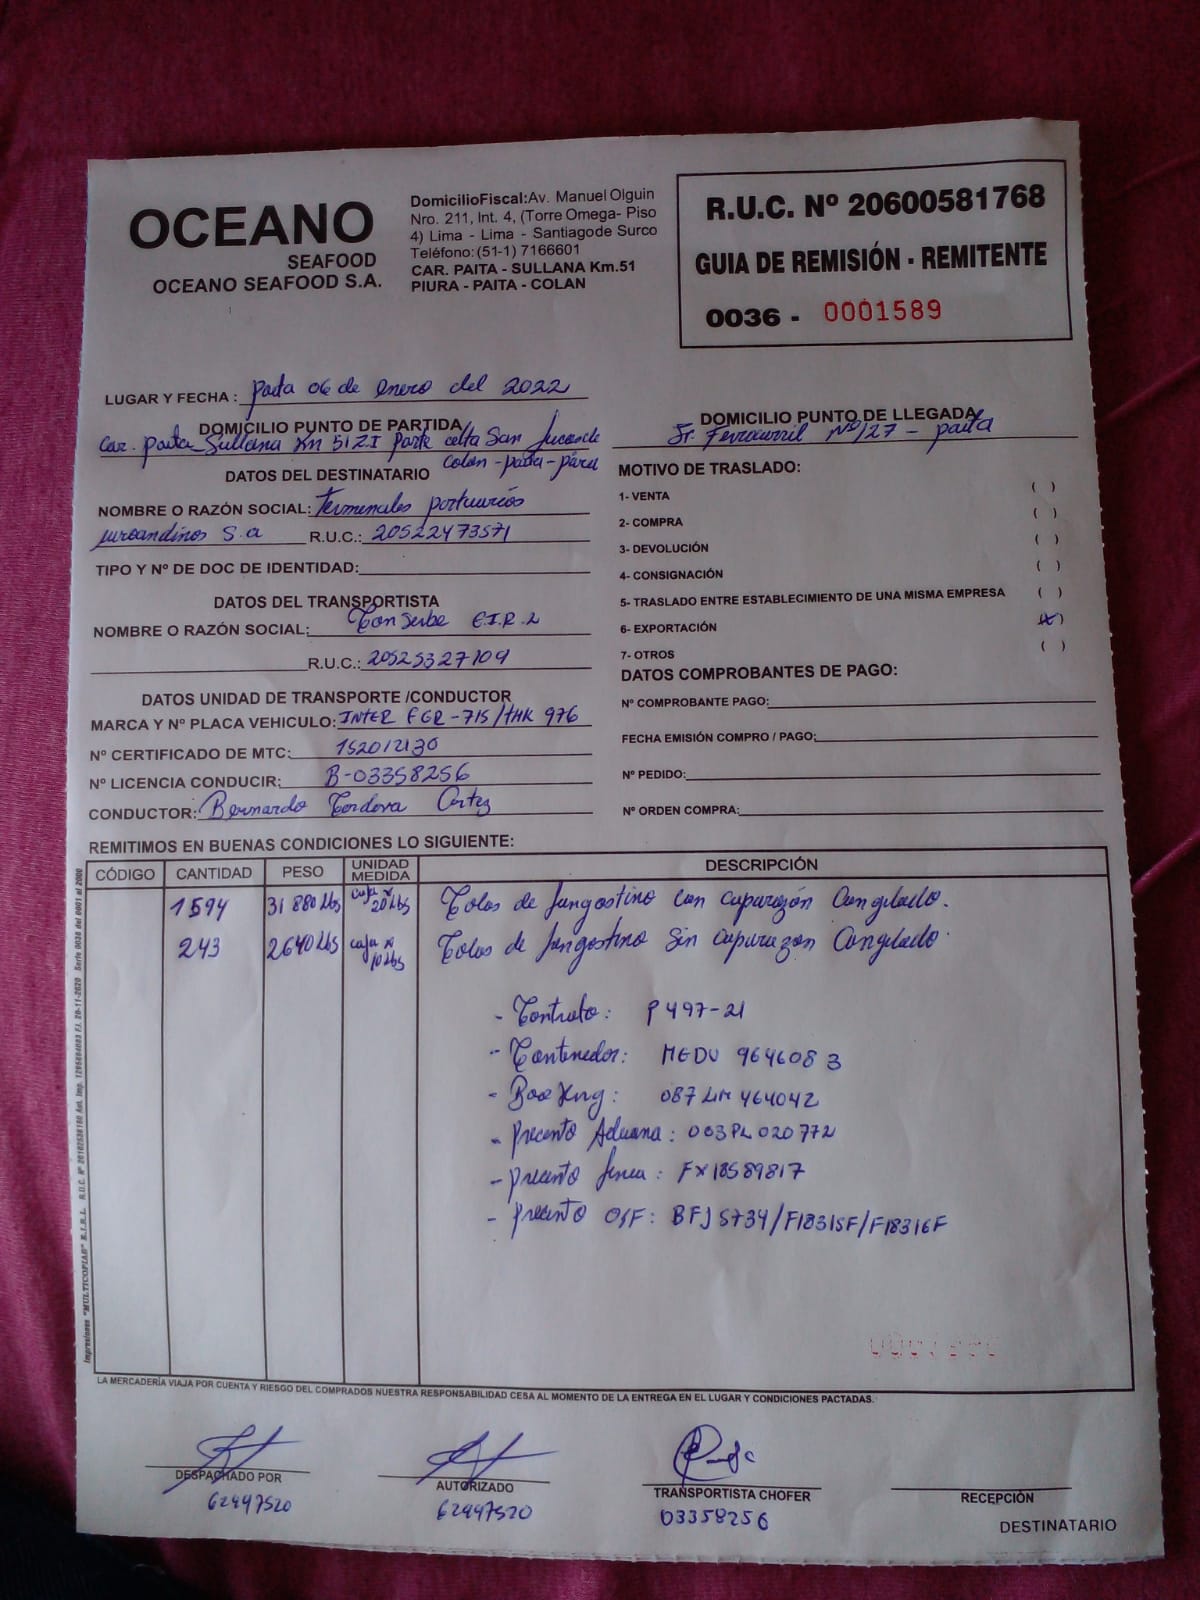 OCEANO
SEAFOOD
OCEANO SEAFOOD S.A.
DomicilioFiscal: Av. Manuel Olguin
Nro. 211, Int. 4, (Torre Omega- Piso
4) Lima - Lima - Santiagode Surco
Teléfono: (51-1) 7166601
CAR. PAITA - SULLANA Km.51
PIURA - PAITA - COLAN
R.U.C. Nº 20600581768
GUIA DE REMISIÓN - REMITENTE
0036 - 0001589
LUGAR Y FECHA : paita 06 de Enero del 2022
DOMICILIO PUNTO DE PARTIDA
Car. paita_Sullana Km 51 Z.I Parte alta San
Colan - paita - piura
DOMICILIO PUNTO DE LLEGADA
Jr. Ferrocarril Nº 127 - paita
DATOS DEL DESTINATARIO
NOMBRE O RAZÓN SOCIAL: Terminales portuarios
euroandinos S.a R.U.C.: 20522473571
TIPO Y Nº DE DOC DE IDENTIDAD:
DATOS DEL TRANSPORTISTA
NOMBRE O RAZÓN SOCIAL: E.I.R.L
R.U.C.: 20525327109
DATOS UNIDAD DE TRANSPORTE /CONDUCTOR
MARCA Y Nº PLACA VEHICULO: INTER FGR-715/THK 976
Nº CERTIFICADO DE MTC: 152012130
Nº LICENCIA CONDUCIR: B-03358256
CONDUCTOR: Bernardo Cordova Cortez
MOTIVO DE TRASLADO:
1- VENTA ( )
2- COMPRA ( )
3- DEVOLUCIÓN ( )
4- CONSIGNACIÓN ( )
5- TRASLADO ENTRE ESTABLECIMIENTO DE UNA MISMA EMPRESA ( )
6- EXPORTACIÓN (x)
7- OTROS ( )
DATOS COMPROBANTES DE PAGO:
Nº COMPROBANTE PAGO:
FECHA EMISIÓN COMPRO / PAGO:
Nº PEDIDO:
Nº ORDEN COMPRA:
REMITIMOS EN BUENAS CONDICIONES LO SIGUIENTE:
CÓDIGO CANTIDAD PESO UNIDAD MEDIDA DESCRIPCIÓN
1594 31 880 Lbs caja x 20 Lbs Colas de langostino con caparazón Congelado.
243 2640 Lbs caja x 10 Lbs Colas de langostino Sin caparazon Congelado.
- Contrato: P 497-21
- Contenedor: MEDU 964608 3
- Booking: 087 LIM 464042
- precinto Aduana: 003PL 020772
- precinto linea: FX18589817
- precinto OSF: BFJ 5734/F18315F/F18316F
LA MERCADERÍA VIAJA POR CUENTA Y RIESGO DEL COMPRADOS NUESTRA RESPONSABILIDAD CESA AL MOMENTO DE LA ENTREGA EN EL LUGAR Y CONDICIONES PACTADAS.
DESPACHADO POR
62447520
AUTORIZADO
62447520
TRANSPORTISTA CHOFER
03358256
RECEPCIÓN
DESTINATARIO